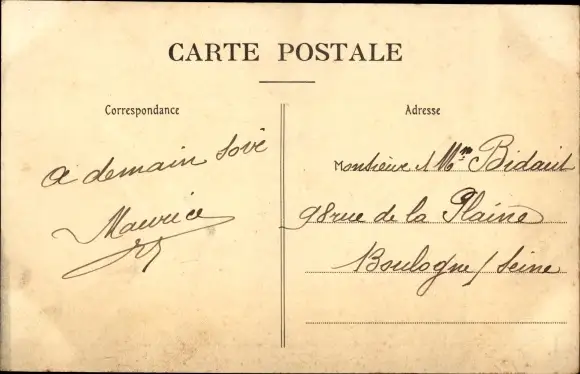 CARTE POSTALE
Correspondance
Adresse
a demain
Maurice
Monsieur Bidault
98 rue de la Plaine
Boulogne / Seine